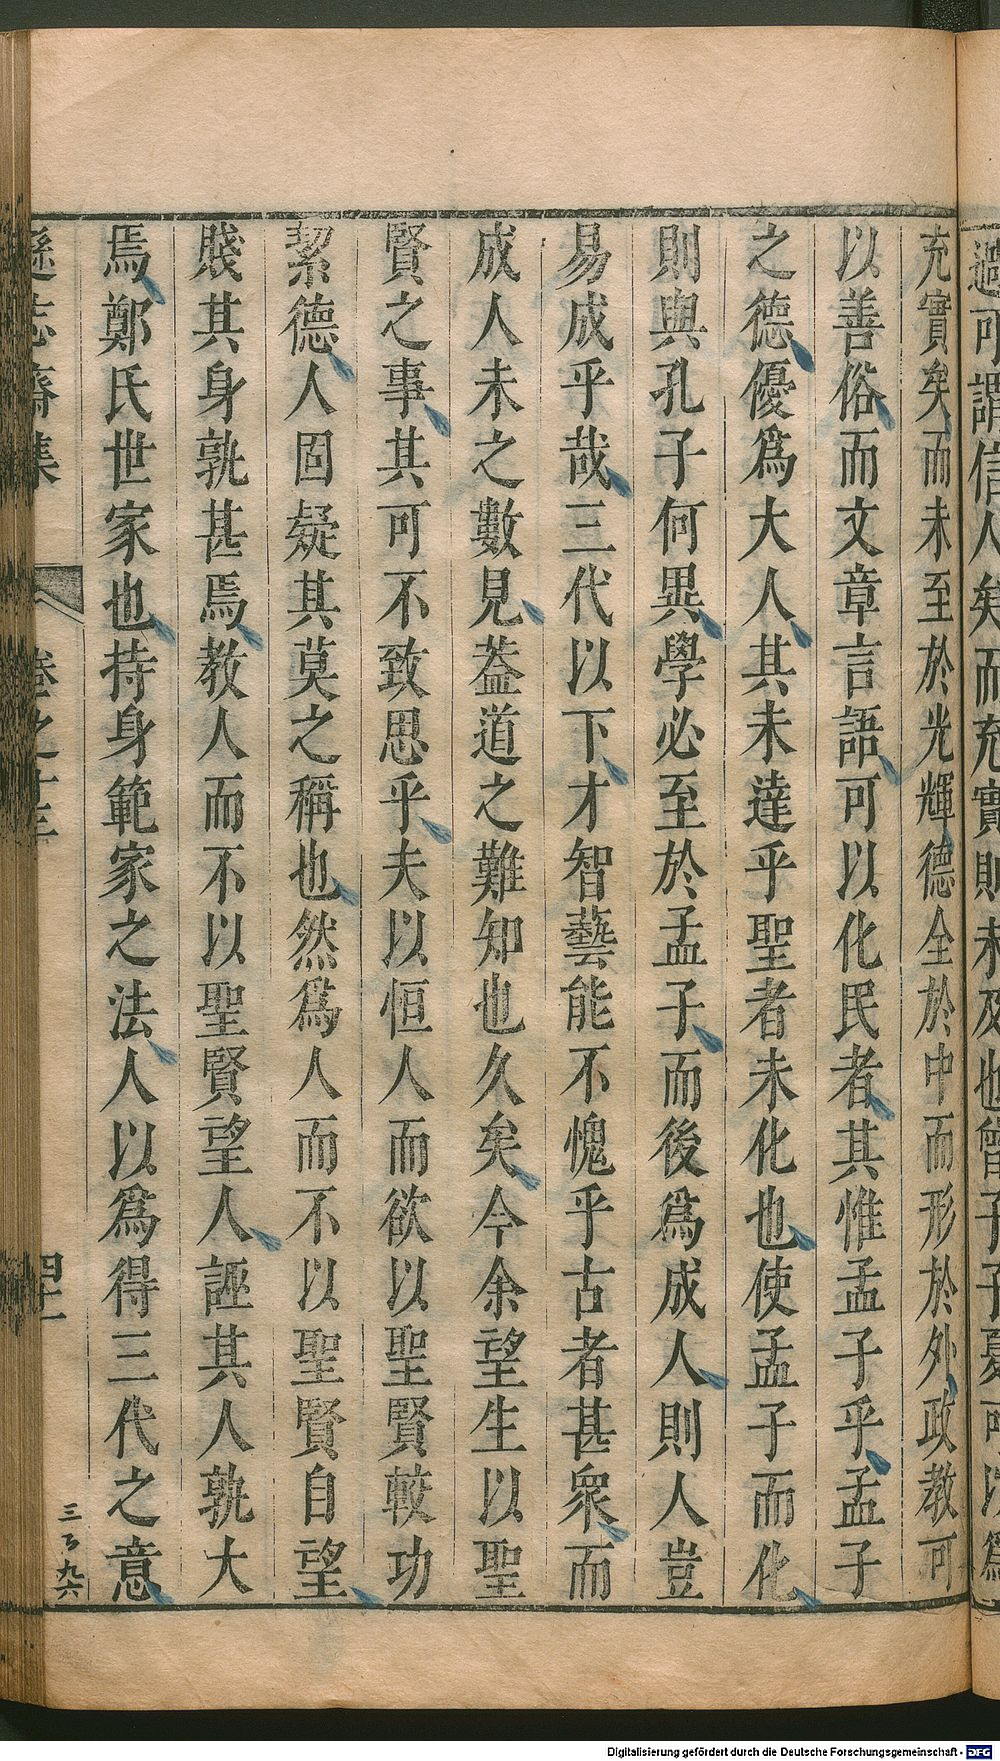 過可謂信人矣而充實則未及也曾子子夏可以爲
充實矣而未至於光輝德全於中而形於外政教可
以善俗而文章言語可以化民者其惟孟子乎孟子
之德優爲大人其未達乎聖者未化也使孟子而化
則與孔子何異學必至於孟子而後爲成人則人豈
易成乎哉三代以下才智藝能不愧乎古者甚衆而
成人未之數見葢道之難知也久矣今余望生以聖
賢之事其可不致思乎夫以恒人而欲以聖賢較功
絜德人固疑其莫之稱也然爲人而不以聖賢自望
賤其身孰甚焉教人而不以聖賢望人誣其人孰大
焉鄭氏世家也持身範家之法人以爲得三代之意
遜志齋集 卷之十三 四十一
三百九六
Digitalisierung gefördert durch die Deutsche Forschungsgemeinschaft - DFG